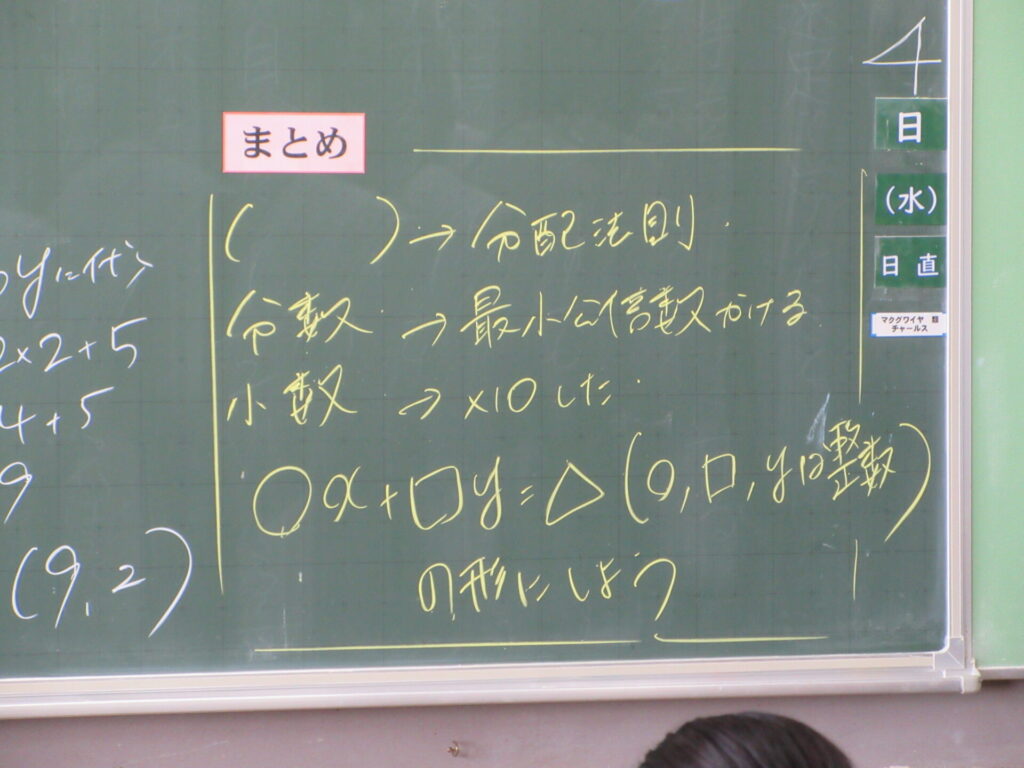 まとめ
( ) → 分配法則.
分数 → 最小公倍数かける
小数 → ×10した.
○x+□y=△(○,□,yは整数)
の形にしよう
yに代
2×2+5
4+5
9
(9,2)
4
日
(水)
日直
マクグワイヤ
チャールス